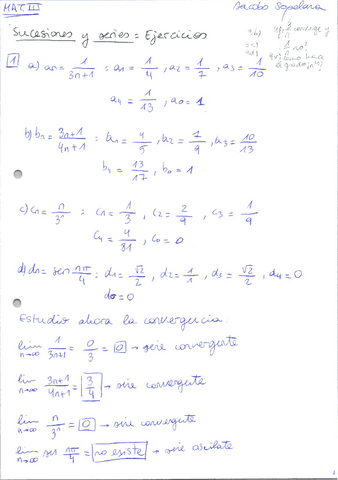 MAT. III
Sucesiones y series = Ejercicios
1 a) an = 1/(3n+1) = a1 = 1/4, a2 = 1/7, a3 = 1/10
a4 = 1/13, a0 = 1
b) bn = (3n+1)/(4n+1) : b1 = 4/5, b2 = 7/9, b3 = 10/13
b4 = 13/17, b0 = 1
c) cn = n/3^n : c1 = 1/3, c2 = 2/9, c3 = 1/9
c4 = 4/81, c0 = 0
d) dn = sen nπ/4 : d1 = √2/2, d2 = 1/1, d3 = √2/2, d4 = 0
d0 = 0
Estudio ahora la convergencia:
lim n→∞ 1/(3n+1) = 0/3 = 0 → serie convergente
lim n→∞ (3n+1)/(4n+1) = 3/4 → serie convergente
lim n→∞ n/3^n = 0 → serie convergente
lim n→∞ sen nπ/4 = no existe → serie oscilante